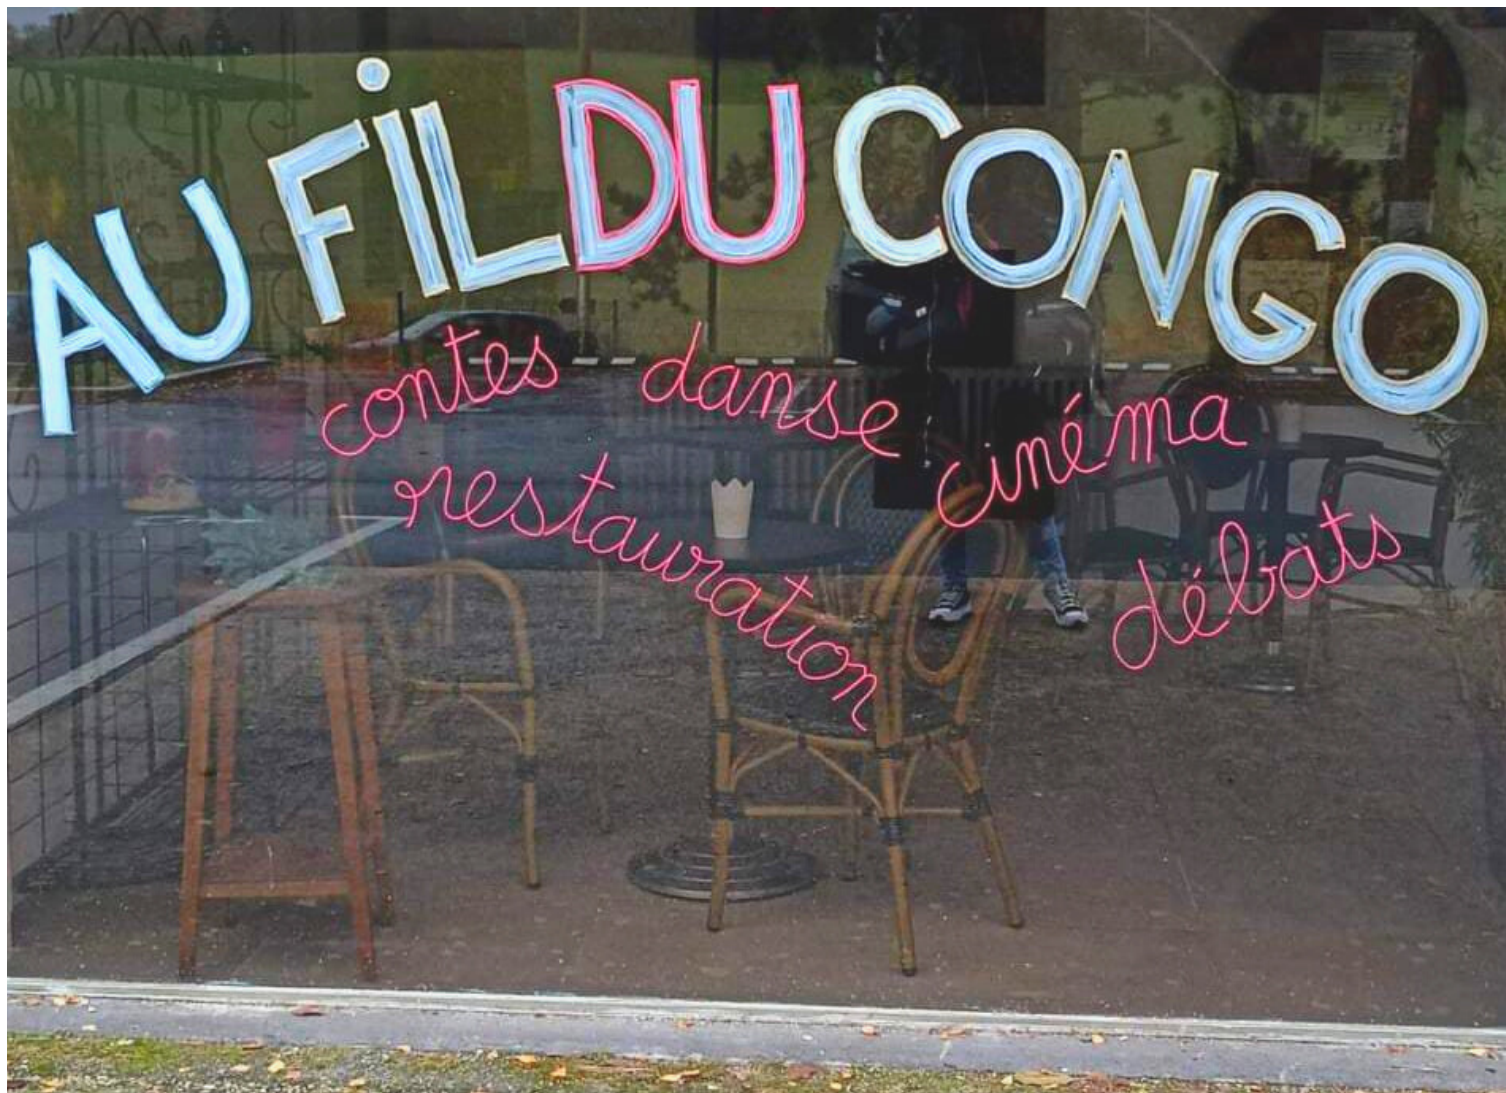 AU FIL DU CONGO
contes danse cinéma
restauration débats